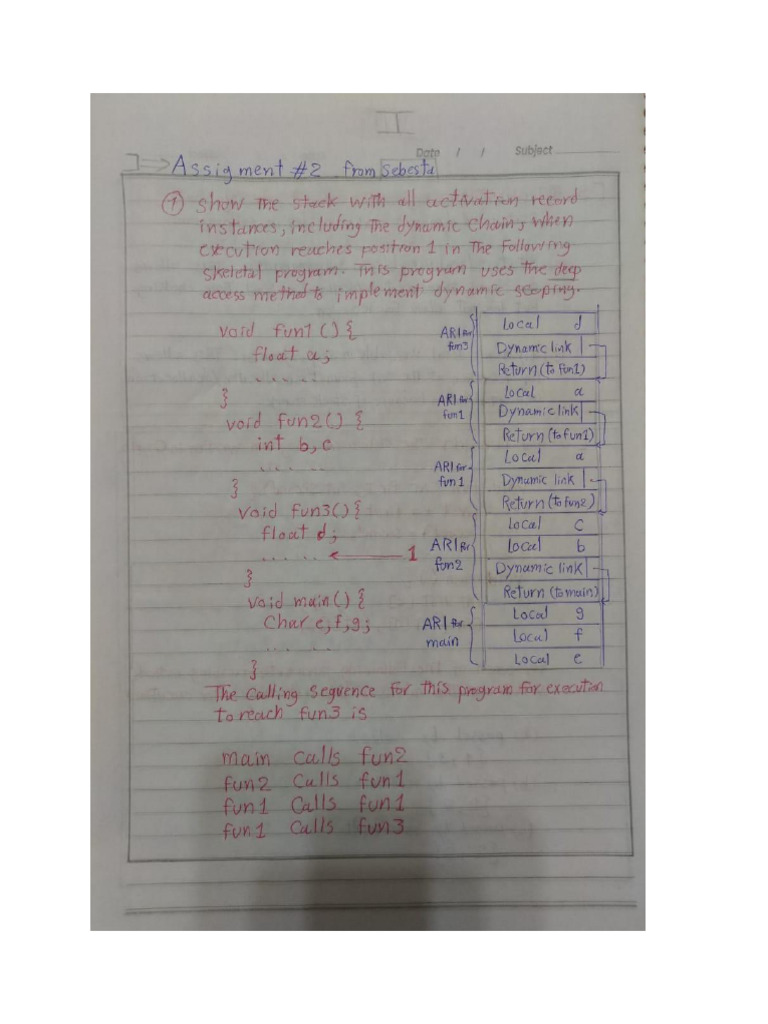 I
Date / / Subject
I => Assigment #2 from Sebesta
① Show The stack with all activation record
instances, including The dynamic chain, when
execution reaches position 1 in The following
skeletal program. This program uses the deep
access method to implement dynamic scoping.
void fun1 () {
float a;
......
}
void fun2() {
int b,c
......
}
void fun3() {
float d;
...... ← 1
}
void main() {
Char e,f,g;
......
}
ARI for fun3
Local d
Dynamic link
Return (to fun1)
ARI for fun1
Local a
Dynamic link
Return (to fun1)
ARI for fun 1
Local a
Dynamic link
Return (to fun2)
ARI for fun2
Local c
Local b
Dynamic link
Return (to main)
ARI for main
Local g
Local f
Local e
The Calling Sequence for This program for execution
to reach fun3 is
main Calls fun2
fun2 Calls fun1
fun1 Calls fun1
fun1 Calls fun3